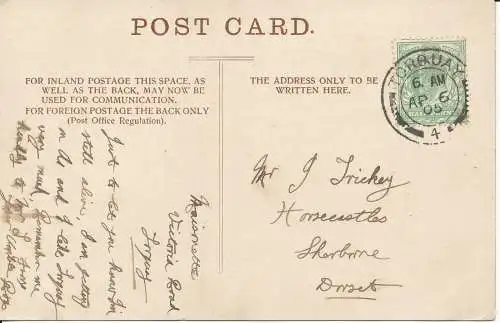 POST CARD.
FOR INLAND POSTAGE THIS SPACE, AS
WELL AS THE BACK, MAY NOW BE
USED FOR COMMUNICATION.
FOR FOREIGN POSTAGE THE BACK ONLY
(Post Office Regulation).
THE ADDRESS ONLY TO BE
WRITTEN HERE.
TORQUAY
6. AM
AP 6
05
4
Maisonette
Victoria Road
Torquay
Just to let you know I'm
still alive, I am getting
on A1 and I like Torquay
very much, Remember me
kindly to Mr
Mr J Trickey
Horsecastles
Sherborne
Dorset